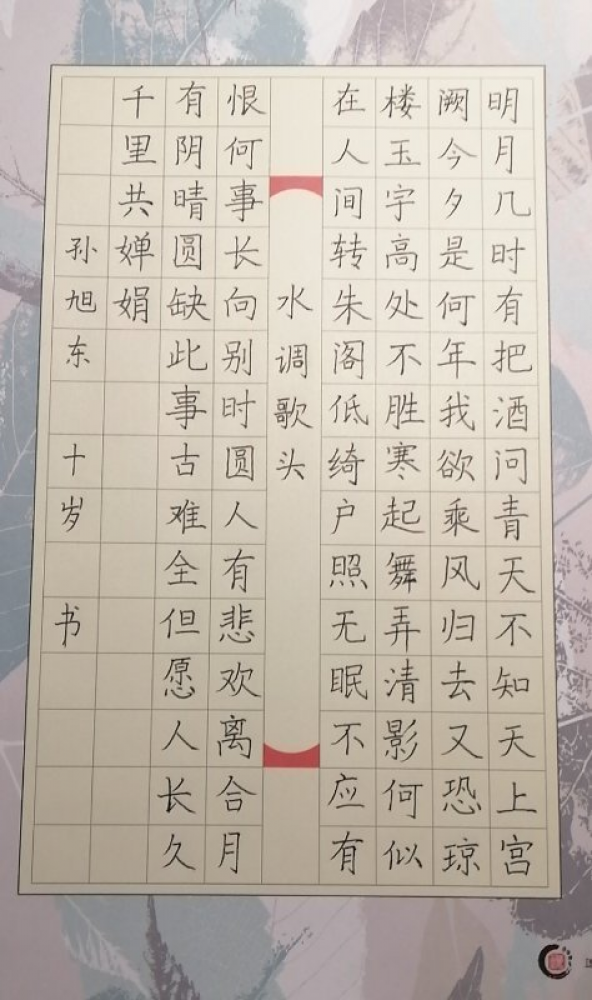 明月几时有把酒问青天不知天上宫
阙今夕是何年我欲乘风归去又恐琼
楼玉字高处不胜寒起舞弄清影何似
在人间转朱阁低绮户照无眠不应有
水调歌头
恨何事长向别时圆人有悲欢离合月
有阴晴圆缺此事古难全但愿人长久
千里共婵娟
孙旭东 十岁 书